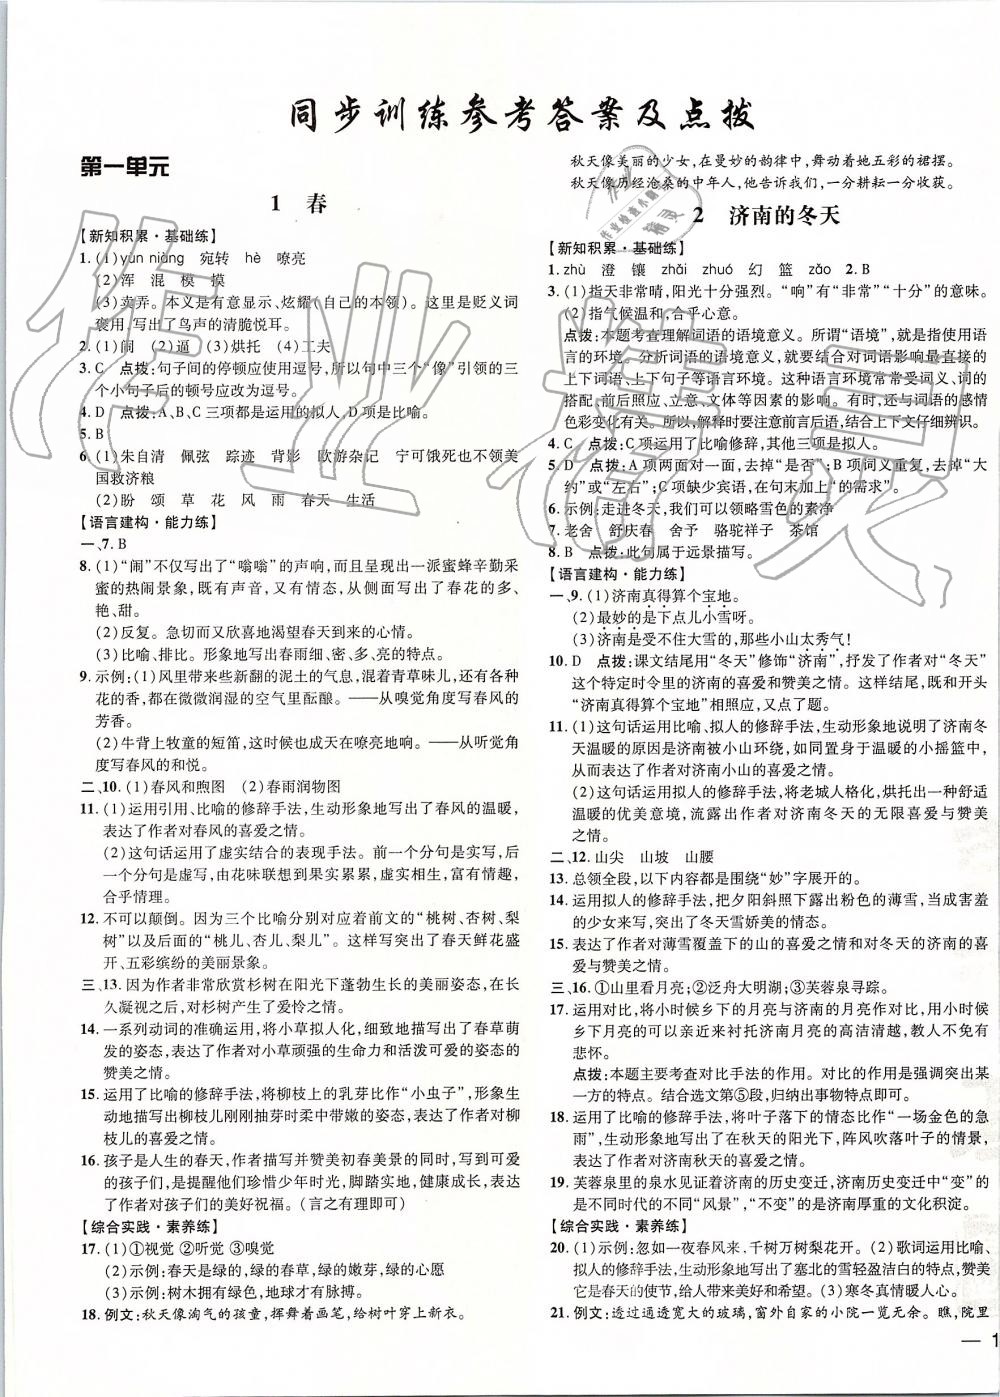 同步训练参考答案及点拨
第一单元
1 春
【新知积累·基础练】
1. (1)yùn niàng 宛转 hè 嘹亮
(2)浑 混 模 摸
(3)卖弄。本义是有意显示、炫耀(自己的本领)。这里是贬义词
褒用,写出了鸟声的清脆悦耳。
2. (1)闹 (2)逼 (3)烘托 (4)工夫
3. C 点拨:句子间的停顿应使用逗号,所以句中三个“像”引领的三
个小句子后的顿号应改为逗号。
4. D 点拨:A、B、C三项都是运用的拟人,D项是比喻。
5. B
6. (1)朱自清 佩弦 踪迹 背影 欧游杂记 宁可饿死也不领美
国救济粮
(2)盼 颂 草 花 风 雨 春天 生活
【语言建构·能力练】
一、7. B
8. (1)“闹”不仅写出了“嗡嗡”的声响,而且呈现出一派蜜蜂辛勤采
蜜的热闹景象,既有声,又有情态,从侧面写出了春花的多、
艳、甜。
(2)反复。急切而又欣喜地渴望春天到来的心情。
(3)比喻、排比。形象地写出春雨细、密、亮的特点。
9. 示例:(1)风里带来些新翻的泥土的气息,混着青草味儿,还有各种
花的香,都在微微润湿的空气里酝酿。——从嗅觉角度写春风的
芳香。
(2)牛背上牧童的短笛,这时候也成天在嘹亮地响。——从听觉角
度写春风的和悦。
二、10. (1)春风和煦图 (2)春雨润物图
11. (1)运用引用、比喻的修辞手法,生动形象地写出了春风的温暖,
表达了作者对春风的喜爱之情。
(2)这句话运用了虚实结合的表现手法。前一个分句是实写,后
一个分句是虚写,由花味联想到果实累累,既生动形象,又自然,
合乎情理。
12. 不可以颠倒。因为三个比喻分别对应着前文的“桃树、杏树、梨
树”以及后面的“桃儿、杏儿、梨儿”。这样写突出了春天鲜花盛
开、五彩缤纷的美丽景象。
三、13. 因为作者非常欣赏杉树在阳光下蓬勃生长的美丽姿态,在长
久凝视之后,对杉树产生了爱怜之情。
14. 一系列动词的准确运用,将小草拟人化,细致地描写出了春草萌
发的姿态,表达了作者对小草顽强的生命力和活泼可爱的姿态的
赞美之情。
15. 运用了比喻的修辞手法,将柳枝上的乳芽比作“小虫子”,形象生
动地描写出柳枝儿刚刚抽芽时柔中带嫩的姿态,表达了作者对柳
枝儿的喜爱之情。
16. 孩子是人生的春天,作者描写并赞美初春美景的同时,写到一些孩
子们,是提醒他们珍惜少年时光,脚踏实地,健康成长,表达了
作者对孩子们的美好祝福。(言之有理即可)
【综合实践·素养练】
17. (1)①视觉 ②听觉 ③嗅觉
(2)示例:春天是绿的,绿的春草,绿的嫩芽,绿的心愿
(3)示例:树木拥有绿色,地球才有脉搏。
18. 例文:秋天像淘气的孩童,挥舞着画笔,给树叶穿上新衣。
秋天像美丽的少女,在曼妙的韵律中,舞动着她五彩的裙摆。
秋天像历经沧桑的中年人,他告诉我们,一分耕耘一分收获。
2 济南的冬天
【新知积累·基础练】
1. zhù 澄 镶 zhǎi zhuó 幻 篮 zǎo 2. B
3. (1)指天非常晴,阳光十分强烈。“响”有“非常”“十分”的意味。
(2)指气候温和,合乎心意。
点拨:本题考查理解词语的语境意义。所谓“语境”,就是使用语
言的环境。分析词语的语境意义,就要结合对词语影响最直接的
上下词语、上下句子等语言环境。这种语言环境常常受词义、词的
搭配、前后照应、立意、文体等因素的影响。有时,还与词语的感情
色彩变化有关。所以,解释时要注意前言后语,结合上下文仔细辨识。
4. C 点拨:C项运用了比喻修辞,其他三项是拟人。
5. D 点拨:A项两面对一面,去掉“是否”;B项词义重复,去掉“大
约”或“左右”;C项缺少宾语,在句末加上“的需求”。
6. 示例:走进冬天,我们可以领略雪色的素净
7. 老舍 舒庆春 舍予 骆驼祥子 茶馆
8. B 点拨:此句属于远景描写。
【语言建构·能力练】
一、9. (1)济南真得算个宝地。
(2)最妙的是下点儿小雪呀。
(3)济南是受不住大雪的,那些小山太秀气!
10. D 点拨:课文结尾用“冬天”修饰“济南”,抒发了作者对“冬天”
这个特定时令里的济南的喜爱和赞美之情。这样结尾,既和开头
“济南真得算个宝地”相照应,又点了题。
11. (1)这句话运用比喻、拟人的修辞手法,生动形象地说明了济南冬
天温暖的原因是济南被小山环绕,如同置身于温暖的小摇篮中,
从而表达了作者对济南小山的喜爱之情。
(2)这句话运用拟人的修辞手法,将老城人格化,烘托出一种舒适
温暖的优美意境,流露出作者对济南冬天的无限喜爱与赞美
之情。
二、12. 山尖 山坡 山腰
13. 总领全段,以下内容都是围绕“妙”字展开的。
14. 运用拟人的修辞手法,把夕阳斜照下露出粉色的薄雪,当成害羞
的少女来写,突出了冬天雪娇美的情态。
15. 表达了作者对薄雪覆盖下的山的喜爱之情和对冬天的济南的喜
爱与赞美之情。
三、16. ①山里看月亮;②泛舟大明湖;③芙蓉泉寻踪。
17. 运用对比,将小时候乡下的月亮与济南的月亮作对比,用小时候
乡下月亮的可以亲近来衬托济南月亮的高洁清越,教人不免有
悲怀。
点拨:本题主要考查对比手法的作用。对比的作用是强调突出某
一方的特点。结合选文第⑤段,归纳出事物特点即可。
18. 运用了比喻的修辞手法,将叶子落下的情态比作“一场金色的急
雨”,生动形象地写出了在秋天的阳光下,阵风吹落叶子的情景,
表达了作者对济南秋天的喜爱之情。
19. 芙蓉泉里的泉水见证着济南的历史变迁,济南历史变迁中“变”的
是不同时代的不同“风景”,“不变”的是济南厚重的文化积淀。
【综合实践·素养练】
20. (1)示例:忽如一夜春风来,千树万树梨花开。(2)歌词运用比喻、
拟人的修辞手法,生动形象地写出了塞北的雪轻盈洁白的特点,赞美
它是春雨的亲姐妹,是春天派出的使节。(3)寒冬真情暖人心。
21. 例文:透过通透宽大的玻璃,窗外自家的小院一览无余。瞧,院里
— 1
作业精灵